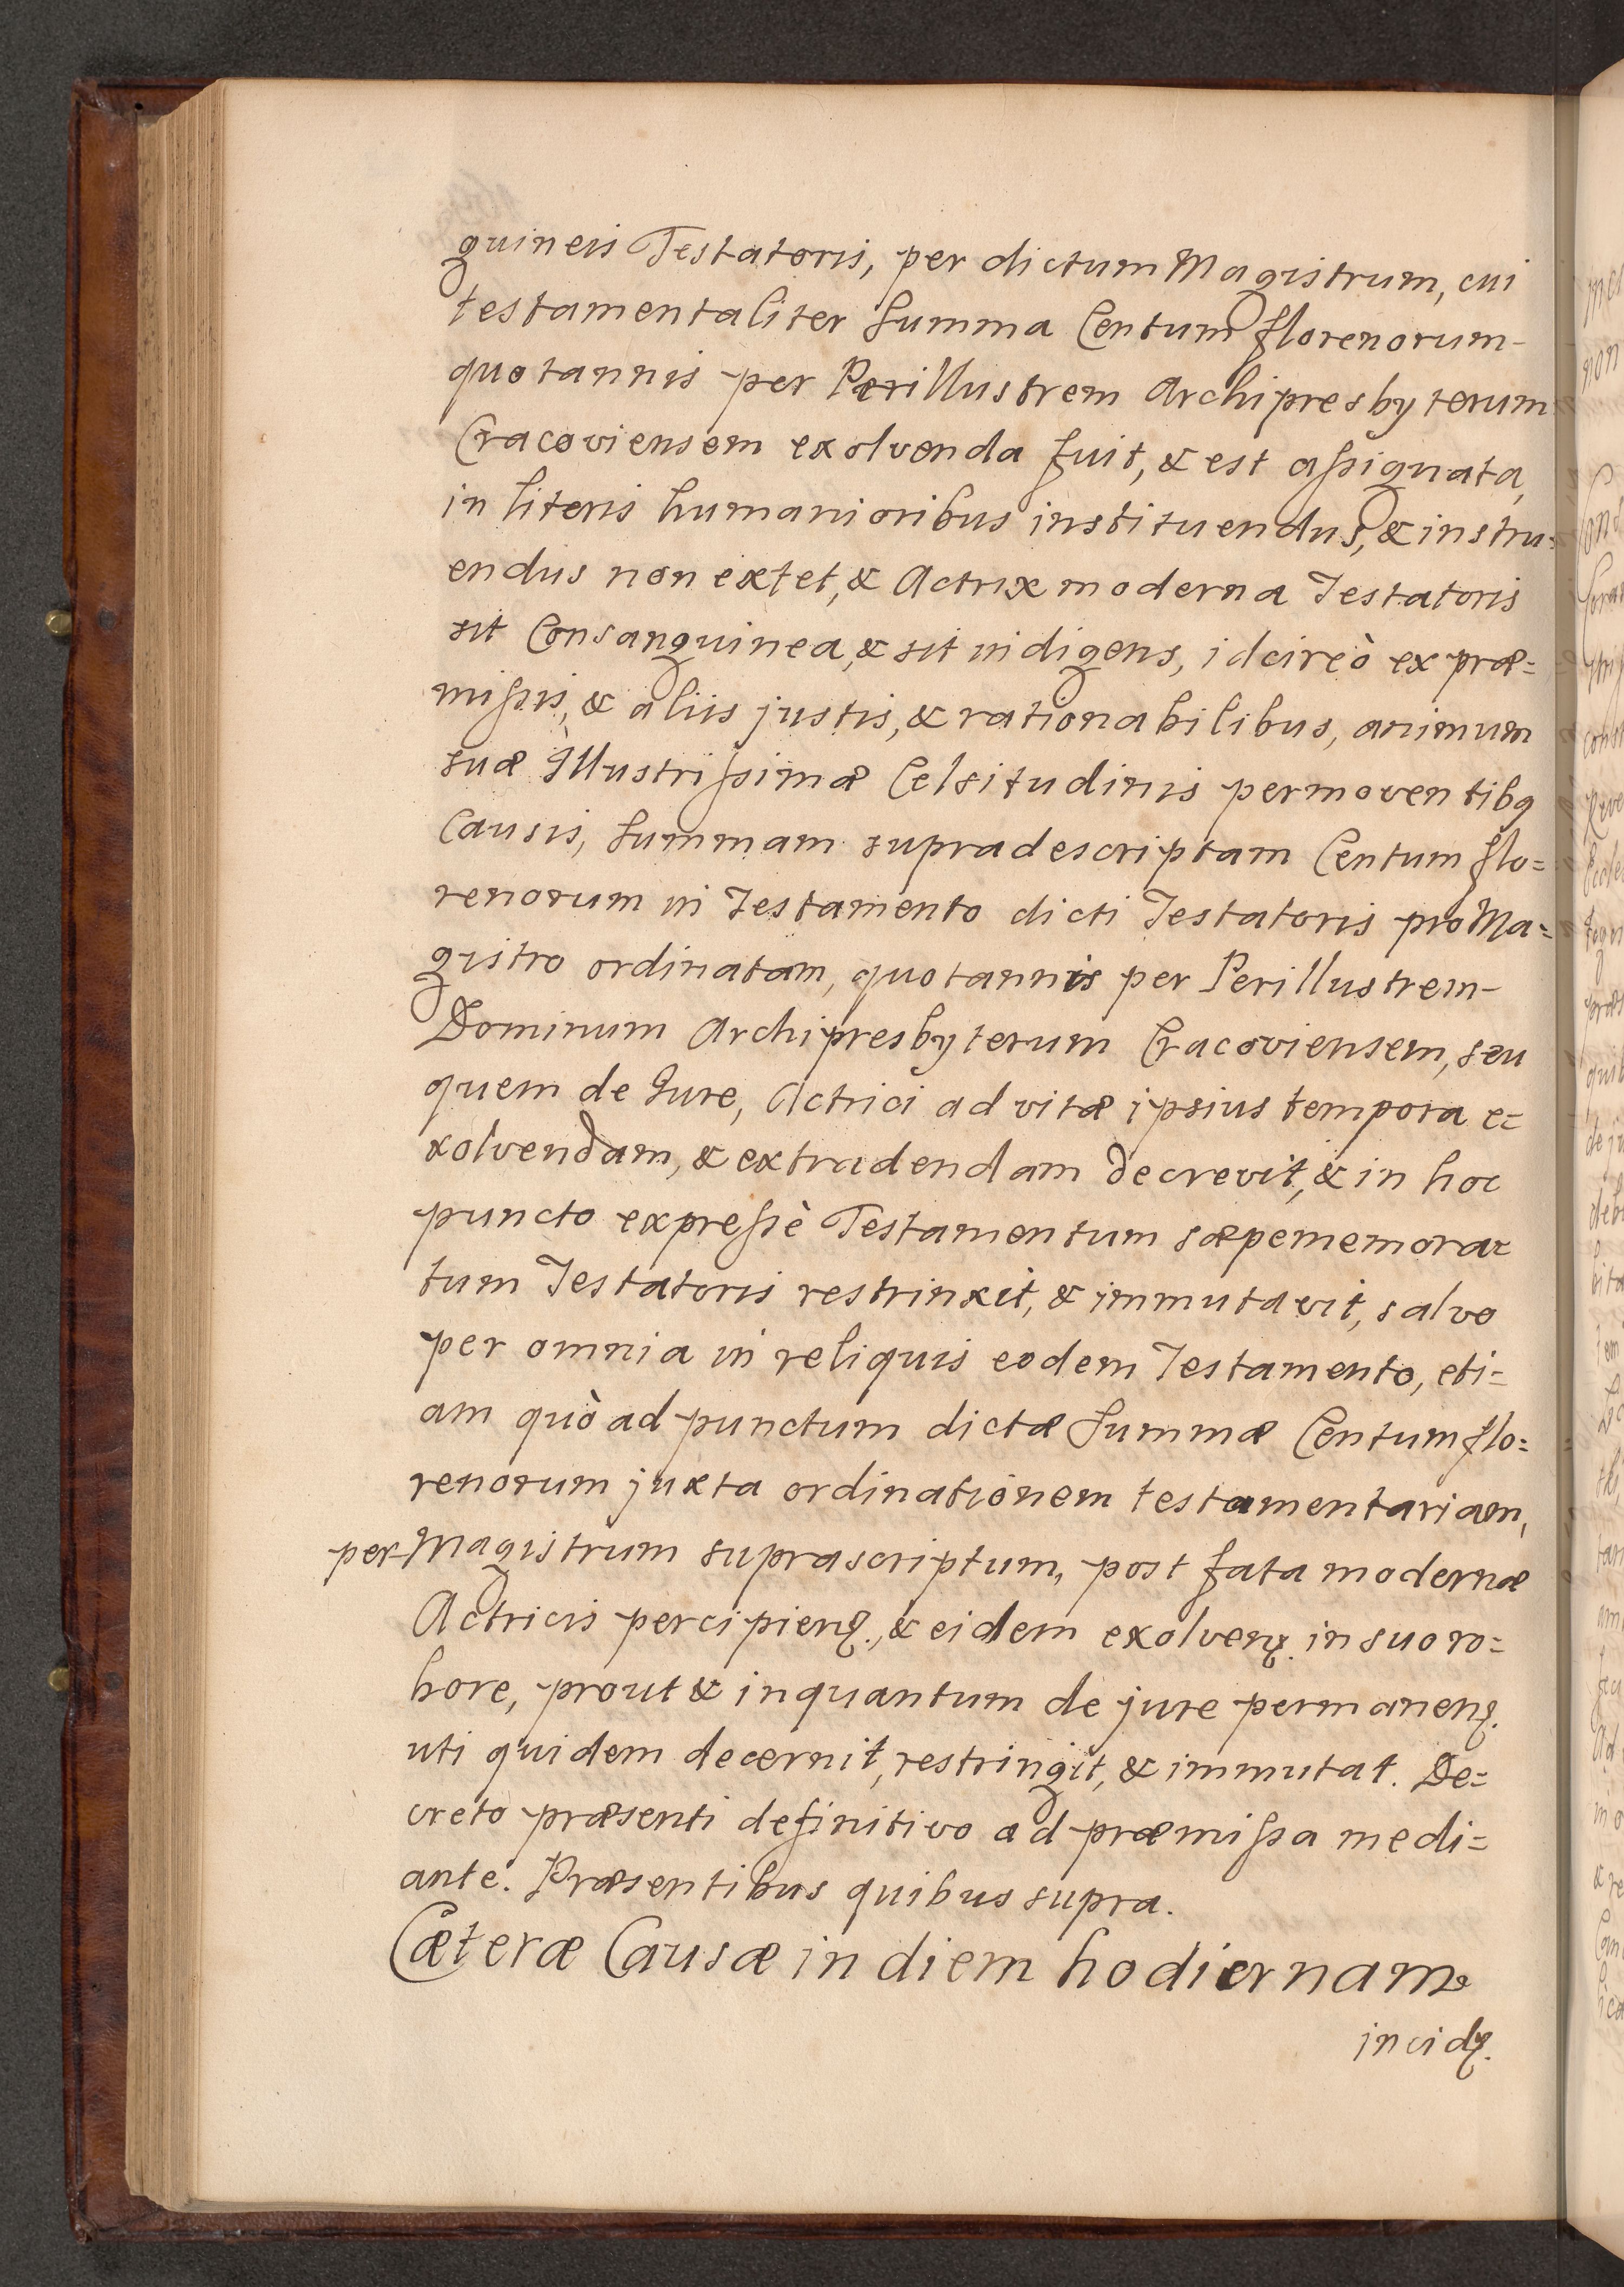 guineis Testatoris, per dictum Magistrum, cui
testamentaliter Summa Centum florenorum-
quotannis per Perillustrem Archipresbyterum
Cracoviensem exolvenda fuit, & est aſsignata,
in literis humanioribus instituendus, & instru=
endus non extet, & Actrix moderna Testatoris
sit Consanguinea, & sit indigens, idcircò ex præ=
miſsis, & aliis justis, & rationabilibus, animum
suæ Illustriſsimæ Celsitudinis permoventibꝫ
Causis, Summam supradescriptam Centum flo=
renorum in Testamento dicti Testatoris pro Ma=
gistro ordinatam, quotannis per Perillustrem-
Dominum Archipresbyterum Cracoviensem, seu
quem de Jure, Actrici ad vitæ ipsius tempora e=
xolvendam, & extradendam decrevit, & in hoc
puncto expreſsè Testamentum sæpememora=
tum Testatoris restrinxit, & immutavit, salvo
per omnia in reliquis eodem Testamento, eti=
am quò ad punctum dictæ Summæ Centum flo=
renorum juxta ordinationem testamentariam,
per Magistrum suprascriptum, post fata modernæ
Actricis percipienꝫ., & eidem exolvenꝫ. in suo ro=
bore, prout & inquantum de jure permanenꝫ.
uti quidem decernit, restringit, & immutat. De=
creto præsenti definitivo ad præmiſsa medi=
ante. Præsentibus quibus supra.
Cæteræ Causæ in diem hodiernam
incidꝫ.